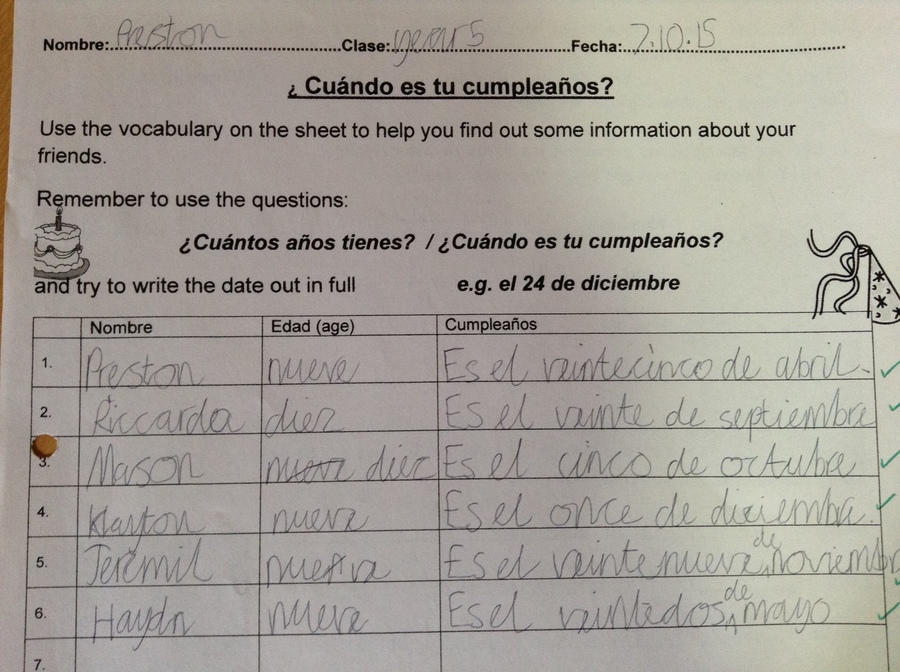 Nombre: Preston Clase: year 5 Fecha: 7.10.15
¿ Cuándo es tu cumpleaños?
Use the vocabulary on the sheet to help you find out some information about your
friends.
Remember to use the questions:
¿Cuántos años tienes? / ¿Cuándo es tu cumpleaños?
and try to write the date out in full e.g. el 24 de diciembre
Nombre Edad (age) Cumpleaños
1. Preston nueve Es el veintecinco de abril.
2. Riccardo diez Es el veinte de septiembre
3. Mason diez Es el cinco de octubre
4. Klayton nueve Es el once de diciembre.
5. Jeremil nueve Es el veintenueve de noviembre
6. Haydn nueve Es el veintedos de mayo
7.